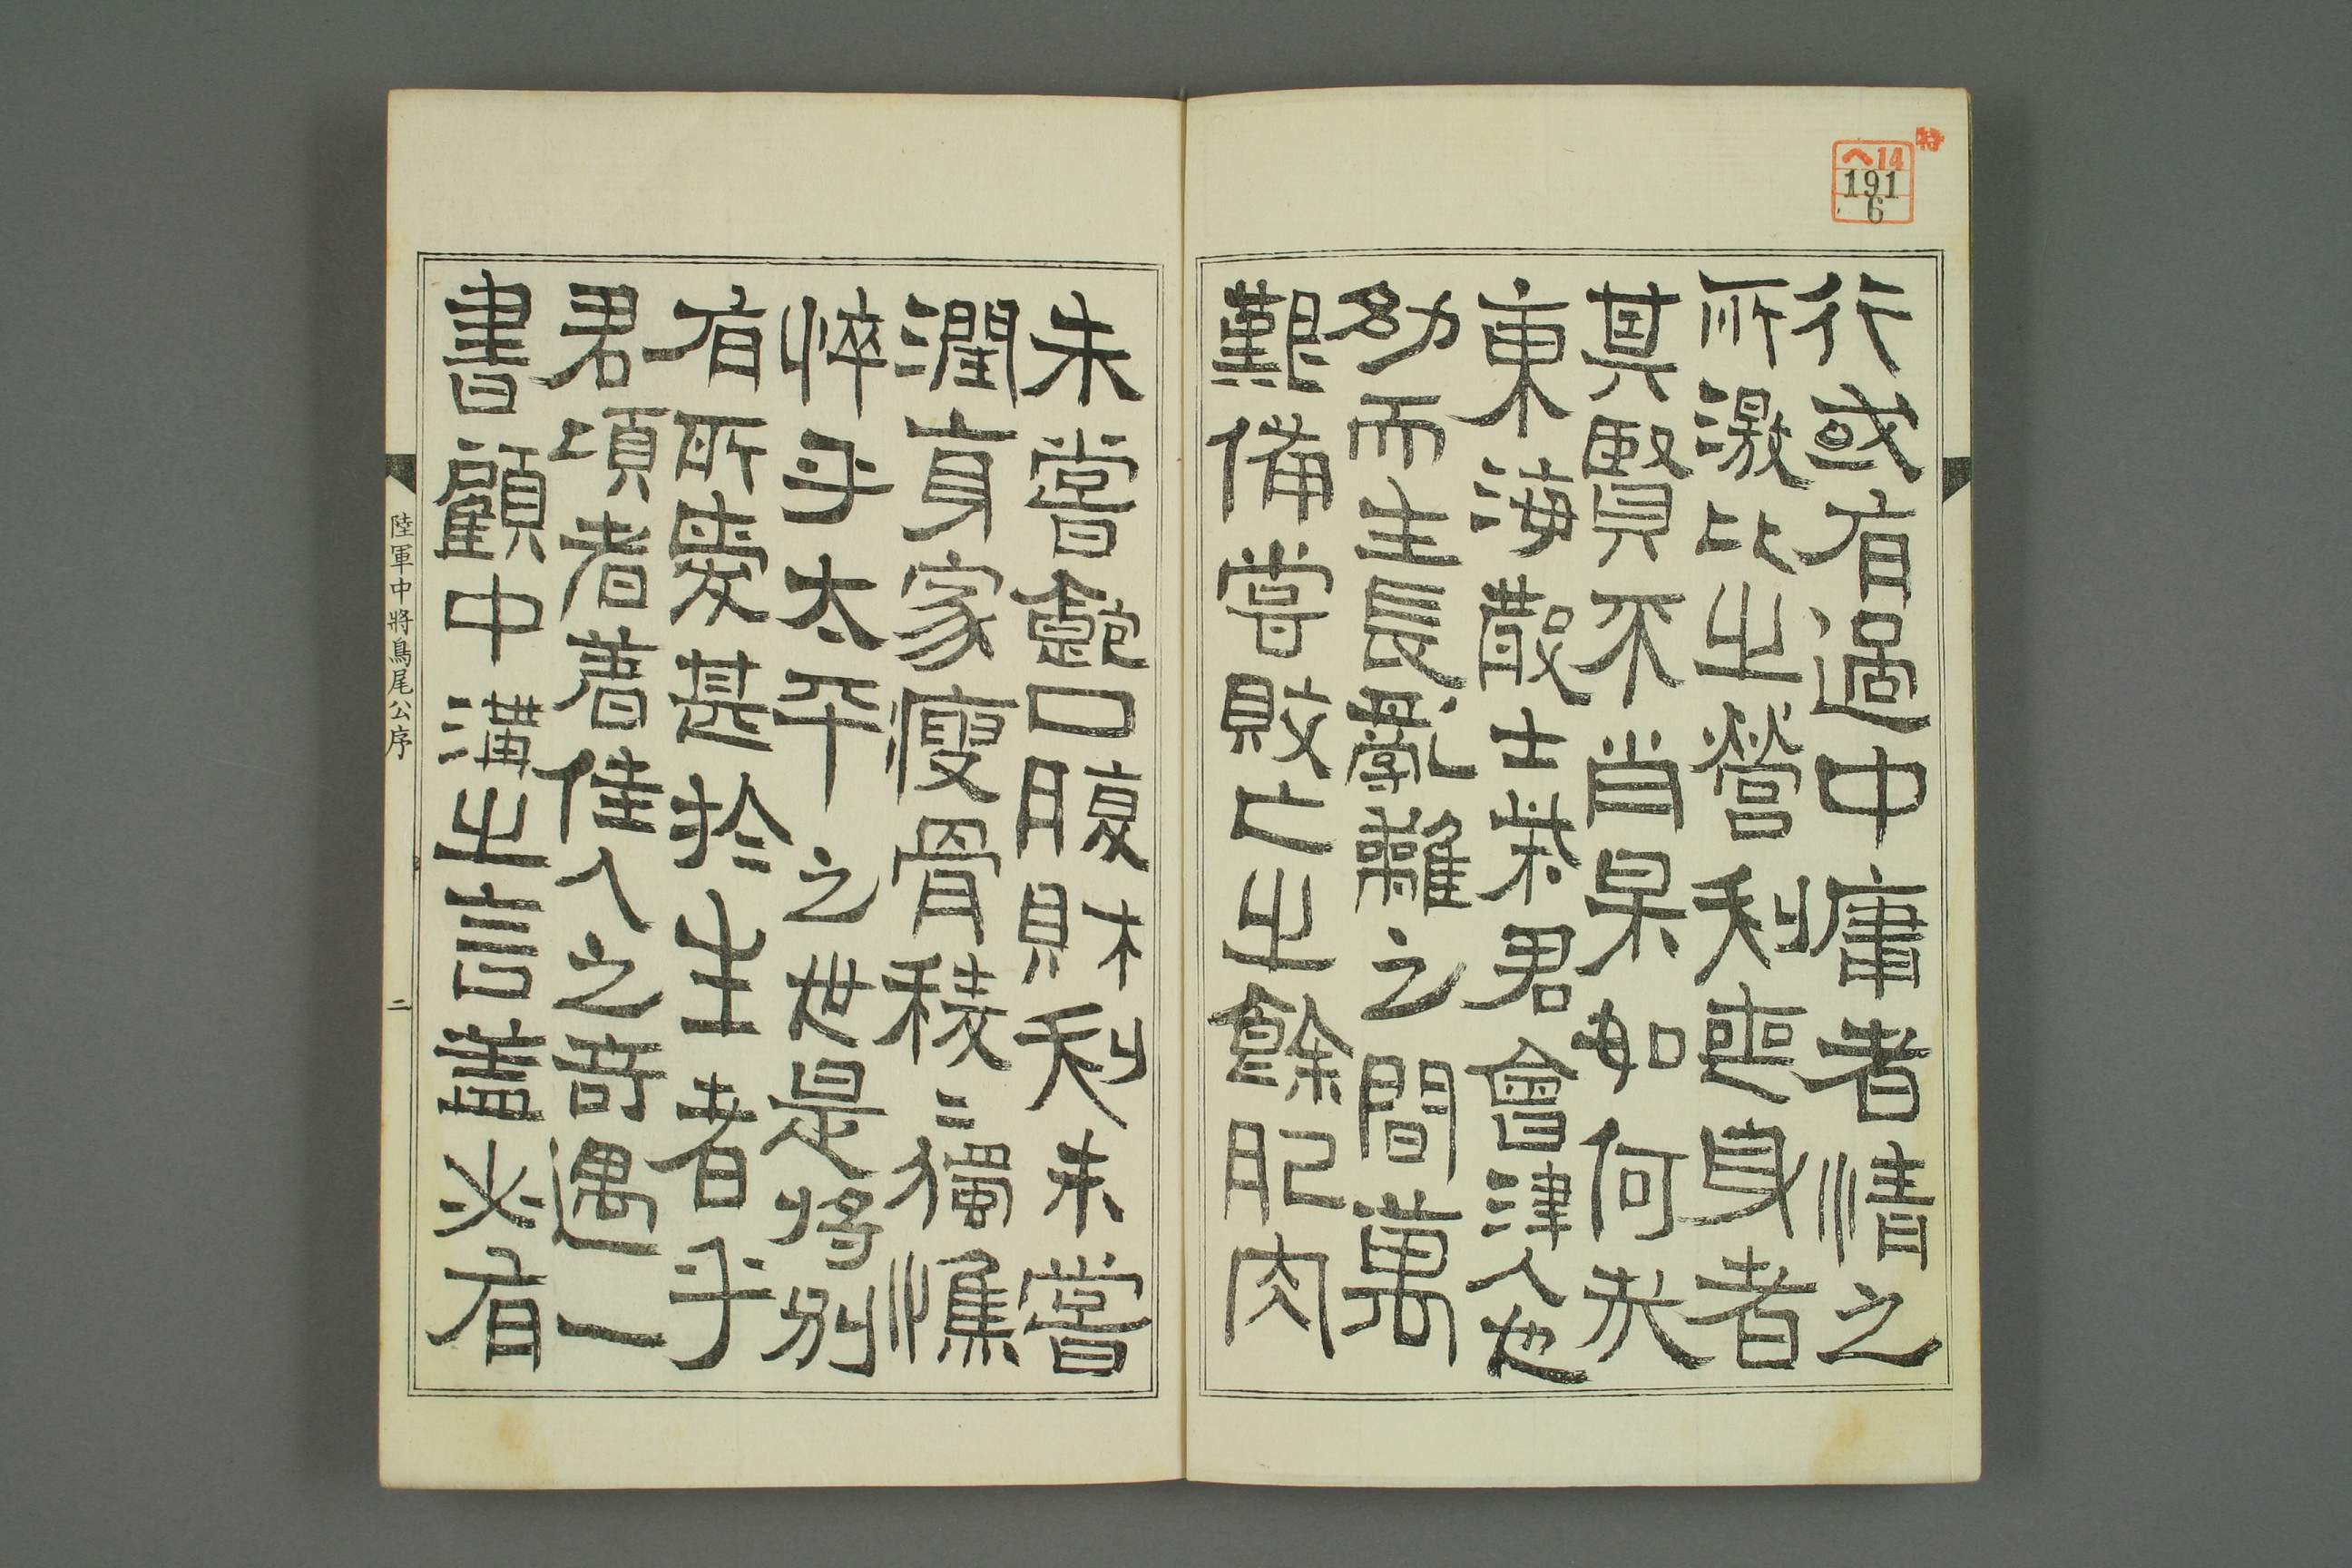 特
ヘ14
191
6
行或有過中庸者情之
所激比之營利喪身者
其賢不肖果如何哉
東海散士柴君會津人也
幼而生長亂離之間萬
艱備嘗敗亡之餘肥肉
未嘗飽口腹財利未嘗
潤身家瘦骨稜〻獨憔
悴乎太平之世是將別
有所憂甚於生者乎
君頃者著佳人之奇遇一
書顧中溝之言蓋必有
陸軍中將鳥尾公序
二